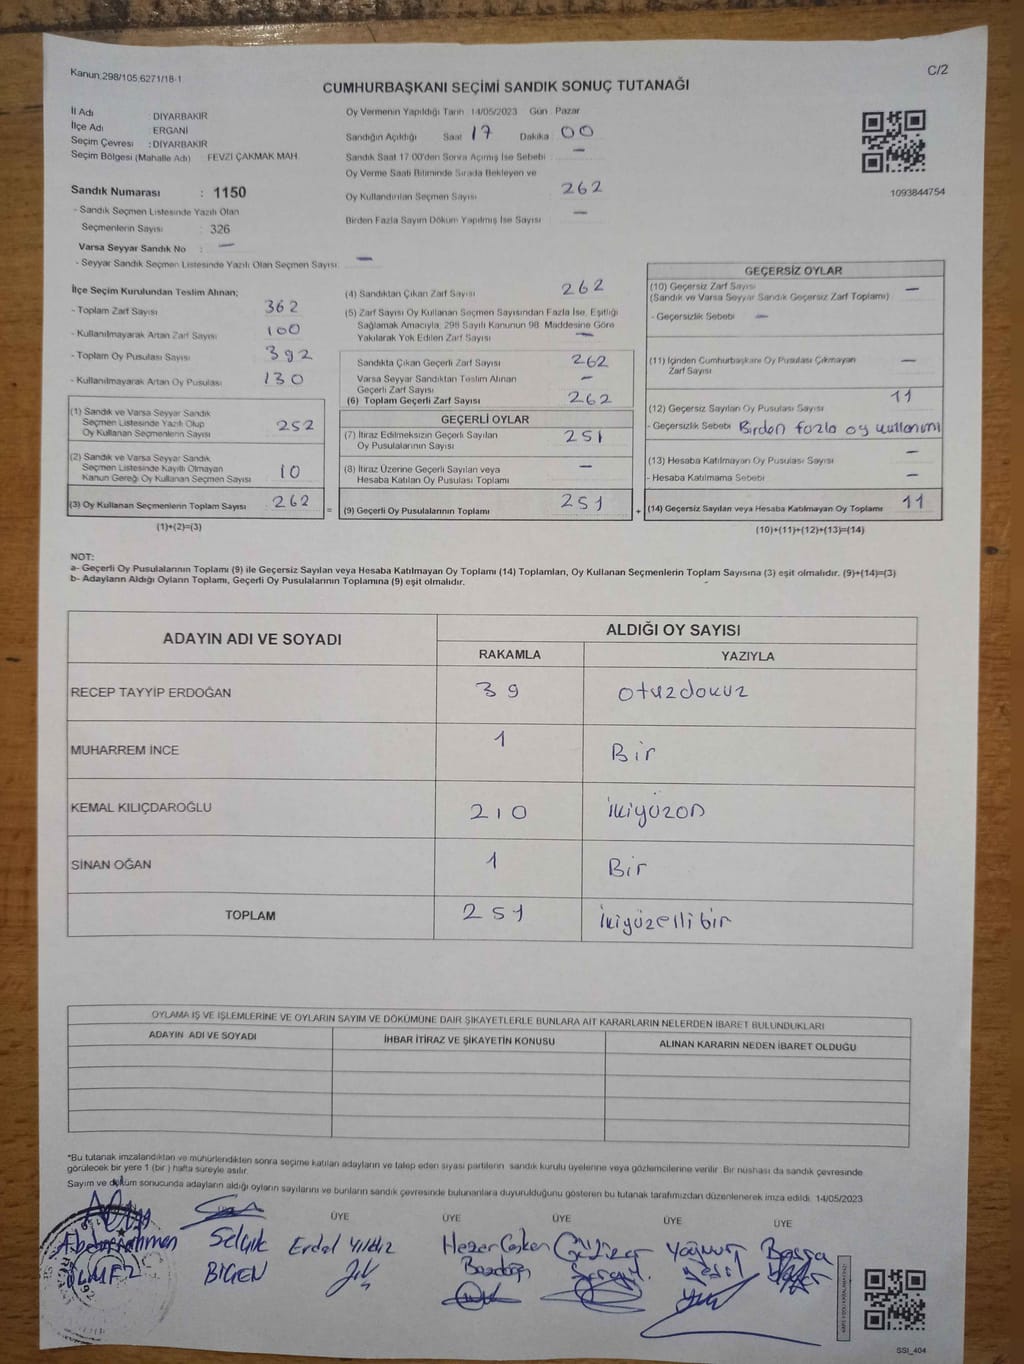 Kanun.298/105,6271/18-1
C/2
CUMHURBAŞKANI SEÇİMİ SANDIK SONUÇ TUTANAĞI
İl Adı : DİYARBAKIR
İlçe Adı : ERGANİ
Seçim Çevresi : DİYARBAKIR
Seçim Bölgesi (Mahalle Adı) FEVZİ ÇAKMAK MAH.
Sandık Numarası : 1150
- Sandık Seçmen Listesinde Yazılı Olan
Seçmenlerin Sayısı : 326
Varsa Seyyar Sandık No : —
- Seyyar Sandık Seçmen Listesinde Yazılı Olan Seçmen Sayısı: —
Oy Vermenin Yapıldığı Tarih 14/05/2023 Gün Pazar
Sandığın Açıldığı Saat 17 Dakika 00
Sandık Saat 17.00'den Sonra Açılmış İse Sebebi —
Oy Verme Saati Bitiminde Sırada Bekleyen ve
Oy Kullandırılan Seçmen Sayısı 262
Birden Fazla Sayım Döküm Yapılmış İse Sayısı —
1093844754
İlçe Seçim Kurulundan Teslim Alınan;
- Toplam Zarf Sayısı 362
- Kullanılmayarak Artan Zarf Sayısı 100
- Toplam Oy Pusulası Sayısı 392
- Kullanılmayarak Artan Oy Pusulası 130
(1) Sandık ve Varsa Seyyar Sandık
Seçmen Listesinde Yazılı Olup
Oy Kullanan Seçmenlerin Sayısı 252
(2) Sandık ve Varsa Seyyar Sandık
Seçmen Listesinde Kayıtlı Olmayan
Kanun Gereği Oy Kullanan Seçmen Sayısı 10
(3) Oy Kullanan Seçmenlerin Toplam Sayısı 262
(1)+(2)=(3)
(4) Sandıktan Çıkan Zarf Sayısı 262
(5) Zarf Sayısı Oy Kullanan Seçmen Sayısından Fazla İse, Eşitliği
Sağlamak Amacıyla, 298 Sayılı Kanunun 98. Maddesine Göre
Yakılarak Yok Edilen Zarf Sayısı —
Sandıkta Çıkan Geçerli Zarf Sayısı 262
Varsa Seyyar Sandıktan Teslim Alınan
Geçerli Zarf Sayısı —
(6) Toplam Geçerli Zarf Sayısı 262
GEÇERLİ OYLAR
(7) İtiraz Edilmeksizin Geçerli Sayılan
Oy Pusulalarının Sayısı 251
(8) İtiraz Üzerine Geçerli Sayılan veya
Hesaba Katılan Oy Pusulası Toplamı —
(9) Geçerli Oy Pusulalarının Toplamı 251
=
+
GEÇERSİZ OYLAR
(10) Geçersiz Zarf Sayısı —
(Sandık ve Varsa Seyyar Sandık Geçersiz Zarf Toplamı)
- Geçersizlik Sebebi —
(11) İçinden Cumhurbaşkanı Oy Pusulası Çıkmayan
Zarf Sayısı —
(12) Geçersiz Sayılan Oy Pusulası Sayısı 11
- Geçersizlik Sebebi Birden fazla oy kullanımı
(13) Hesaba Katılmayan Oy Pusulası Sayısı —
- Hesaba Katılmama Sebebi —
(14) Geçersiz Sayılan veya Hesaba Katılmayan Oy Toplamı 11
(10)+(11)+(12)+(13)=(14)
NOT:
a- Geçerli Oy Pusulalarının Toplamı (9) ile Geçersiz Sayılan veya Hesaba Katılmayan Oy Toplamı (14) Toplamları, Oy Kullanan Seçmenlerin Toplam Sayısına (3) eşit olmalıdır. (9)+(14)=(3)
b- Adayların Aldığı Oyların Toplamı, Geçerli Oy Pusulalarının Toplamına (9) eşit olmalıdır.
ADAYIN ADI VE SOYADI
ALDIĞI OY SAYISI
RAKAMLA YAZIYLA
RECEP TAYYİP ERDOĞAN 39 otuzdokuz
MUHARREM İNCE 1 Bir
KEMAL KILIÇDAROĞLU 210 ikiyüzon
SİNAN OĞAN 1 Bir
TOPLAM 251 ikiyüzellibir
OYLAMA İŞ VE İŞLEMLERİNE VE OYLARIN SAYIM VE DÖKÜMÜNE DAİR ŞİKAYETLERLE BUNLARA AİT KARARLARIN NELERDEN İBARET BULUNDUKLARI
ADAYIN ADI VE SOYADI İHBAR İTİRAZ VE ŞİKAYETİN KONUSU ALINAN KARARIN NEDEN İBARET OLDUĞU
*Bu tutanak imzalandıktan ve mühürlendikten sonra seçime katılan adayların ve talep eden siyasi partilerin sandık kurulu üyelerine veya gözlemcilerine verilir. Bir nüshası da sandık çevresinde
görülecek bir yere 1 (bir) hafta süreyle asılır.
Sayım ve döküm sonucunda adayların aldığı oyların sayılarını ve bunların sandık çevresinde bulunanlara duyurulduğunu gösteren bu tutanak tarafımızdan düzenlenerek imza edildi. 14/05/2023
ÜYE ÜYE ÜYE ÜYE ÜYE
Abdurrahman Selçuk Erdal Yıldız Yağmur Basra
ÖLMEZ BİGEN Yeşil
SSİ_404